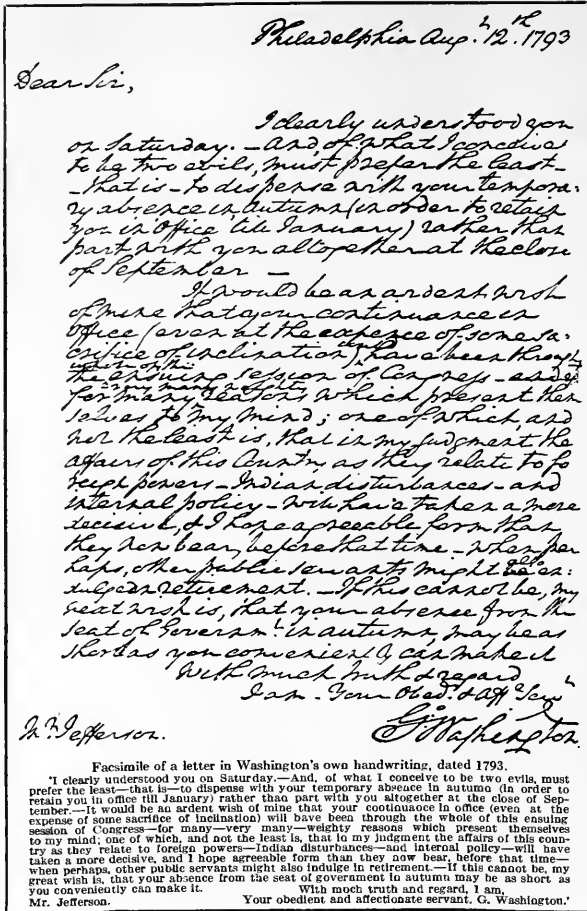 Philadelphia Augt. 12th. 1793
Dear Sir,
I clearly understood you
on Saturday. – And, of what I conceive
to be two evils, must prefer the least –
– that is – to dispense with your tempora:
ry absence in Autumn (in order to retain
you in Office till January) rather than
part with you altogether at the close
of September –
It would be an ardent wish
of mine that your continuance in
Office (even at the expence of some sa:
crifice of inclination) have been through
whole of the
the ensuing session of Congress – and
– very many weighty
for many reasons which present them
selves to my mind; one of which, and
not the least is, that in my judgment the
affairs of this Country as they relate to fo
reign powers – Indian disturbances – and
internal policy – will have taken a more
decisive, & I hope agreeable form than
they now bear, before that time – when per
haps, other public servants might also in:
dulge in retirement. – If this cannot be, my
great wish is, that your absence from the
seat of Governmt. in autumn, may be as
short as you conveniently can make it
With much truth & regard
I am – Your Obedt. & Affe. Servt
Mr. Jefferson.
Go Washington.
Facsimile of a letter in Washington's own handwriting, dated 1793.
'I clearly understood you on Saturday.—And, of what I conceive to be two evils, must
prefer the least—that is—to dispense with your temporary absence in autumn (in order to
retain you in office till January) rather than part with you altogether at the close of Sep-
tember.—It would be an ardent wish of mine that your continuance in office (even at the
expense of some sacrifice of inclination) will have been through the whole of this ensuing
session of Congress—for many—very many—weighty reasons which present themselves
to my mind; one of which, and not the least is, that in my judgment the affairs of this coun-
try as they relate to foreign powers—Indian disturbances—and internal policy—will have
taken a more decisive, and I hope agreeable form than they now bear, before that time—
when perhaps, other public servants might also indulge in retirement.—If this cannot be, my
great wish is, that your absence from the seat of government in autumn may be as short as
you conveniently can make it. With much truth and regard, I am,
Mr. Jefferson. Your obedient and affectionate servant, G. Washington.'